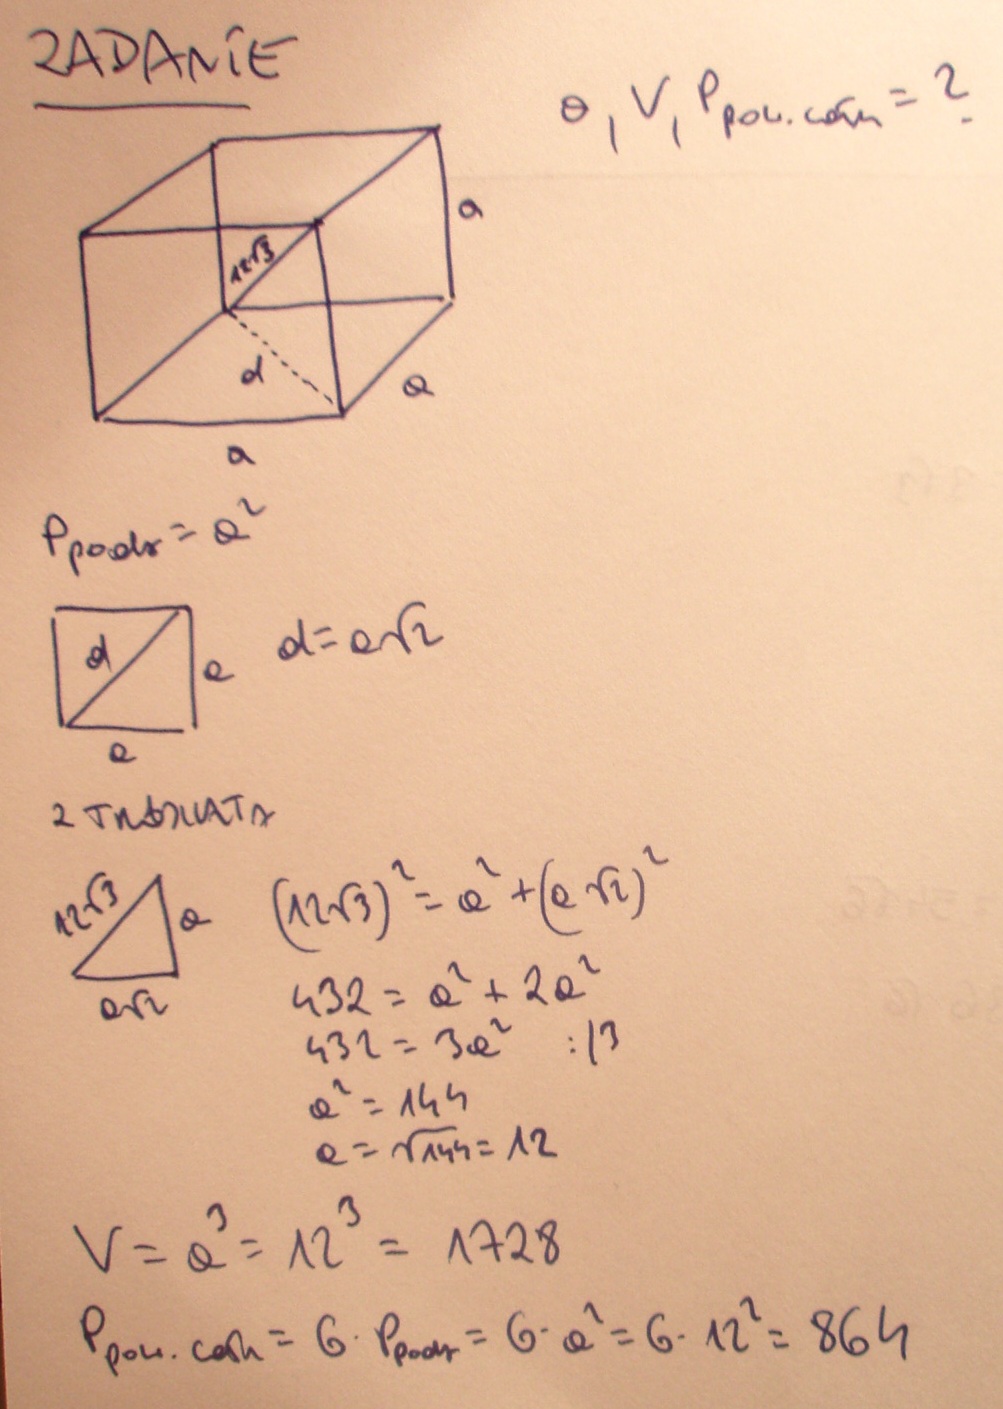 ZADANIE
a, V, Ppow. całk = ?
a
12√3
d
a
a
Ppodst = a²
d
a
d = a√2
a
Z TRÓJKĄTA
12√3
a
a√2
(12√3)² = a² + (a√2)²
432 = a² + 2a²
432 = 3a² :/3
a² = 144
a = √144 = 12
V = a³ = 12³ = 1728
Ppow. całk = 6 · Ppodst = 6 · a² = 6 · 12² = 864